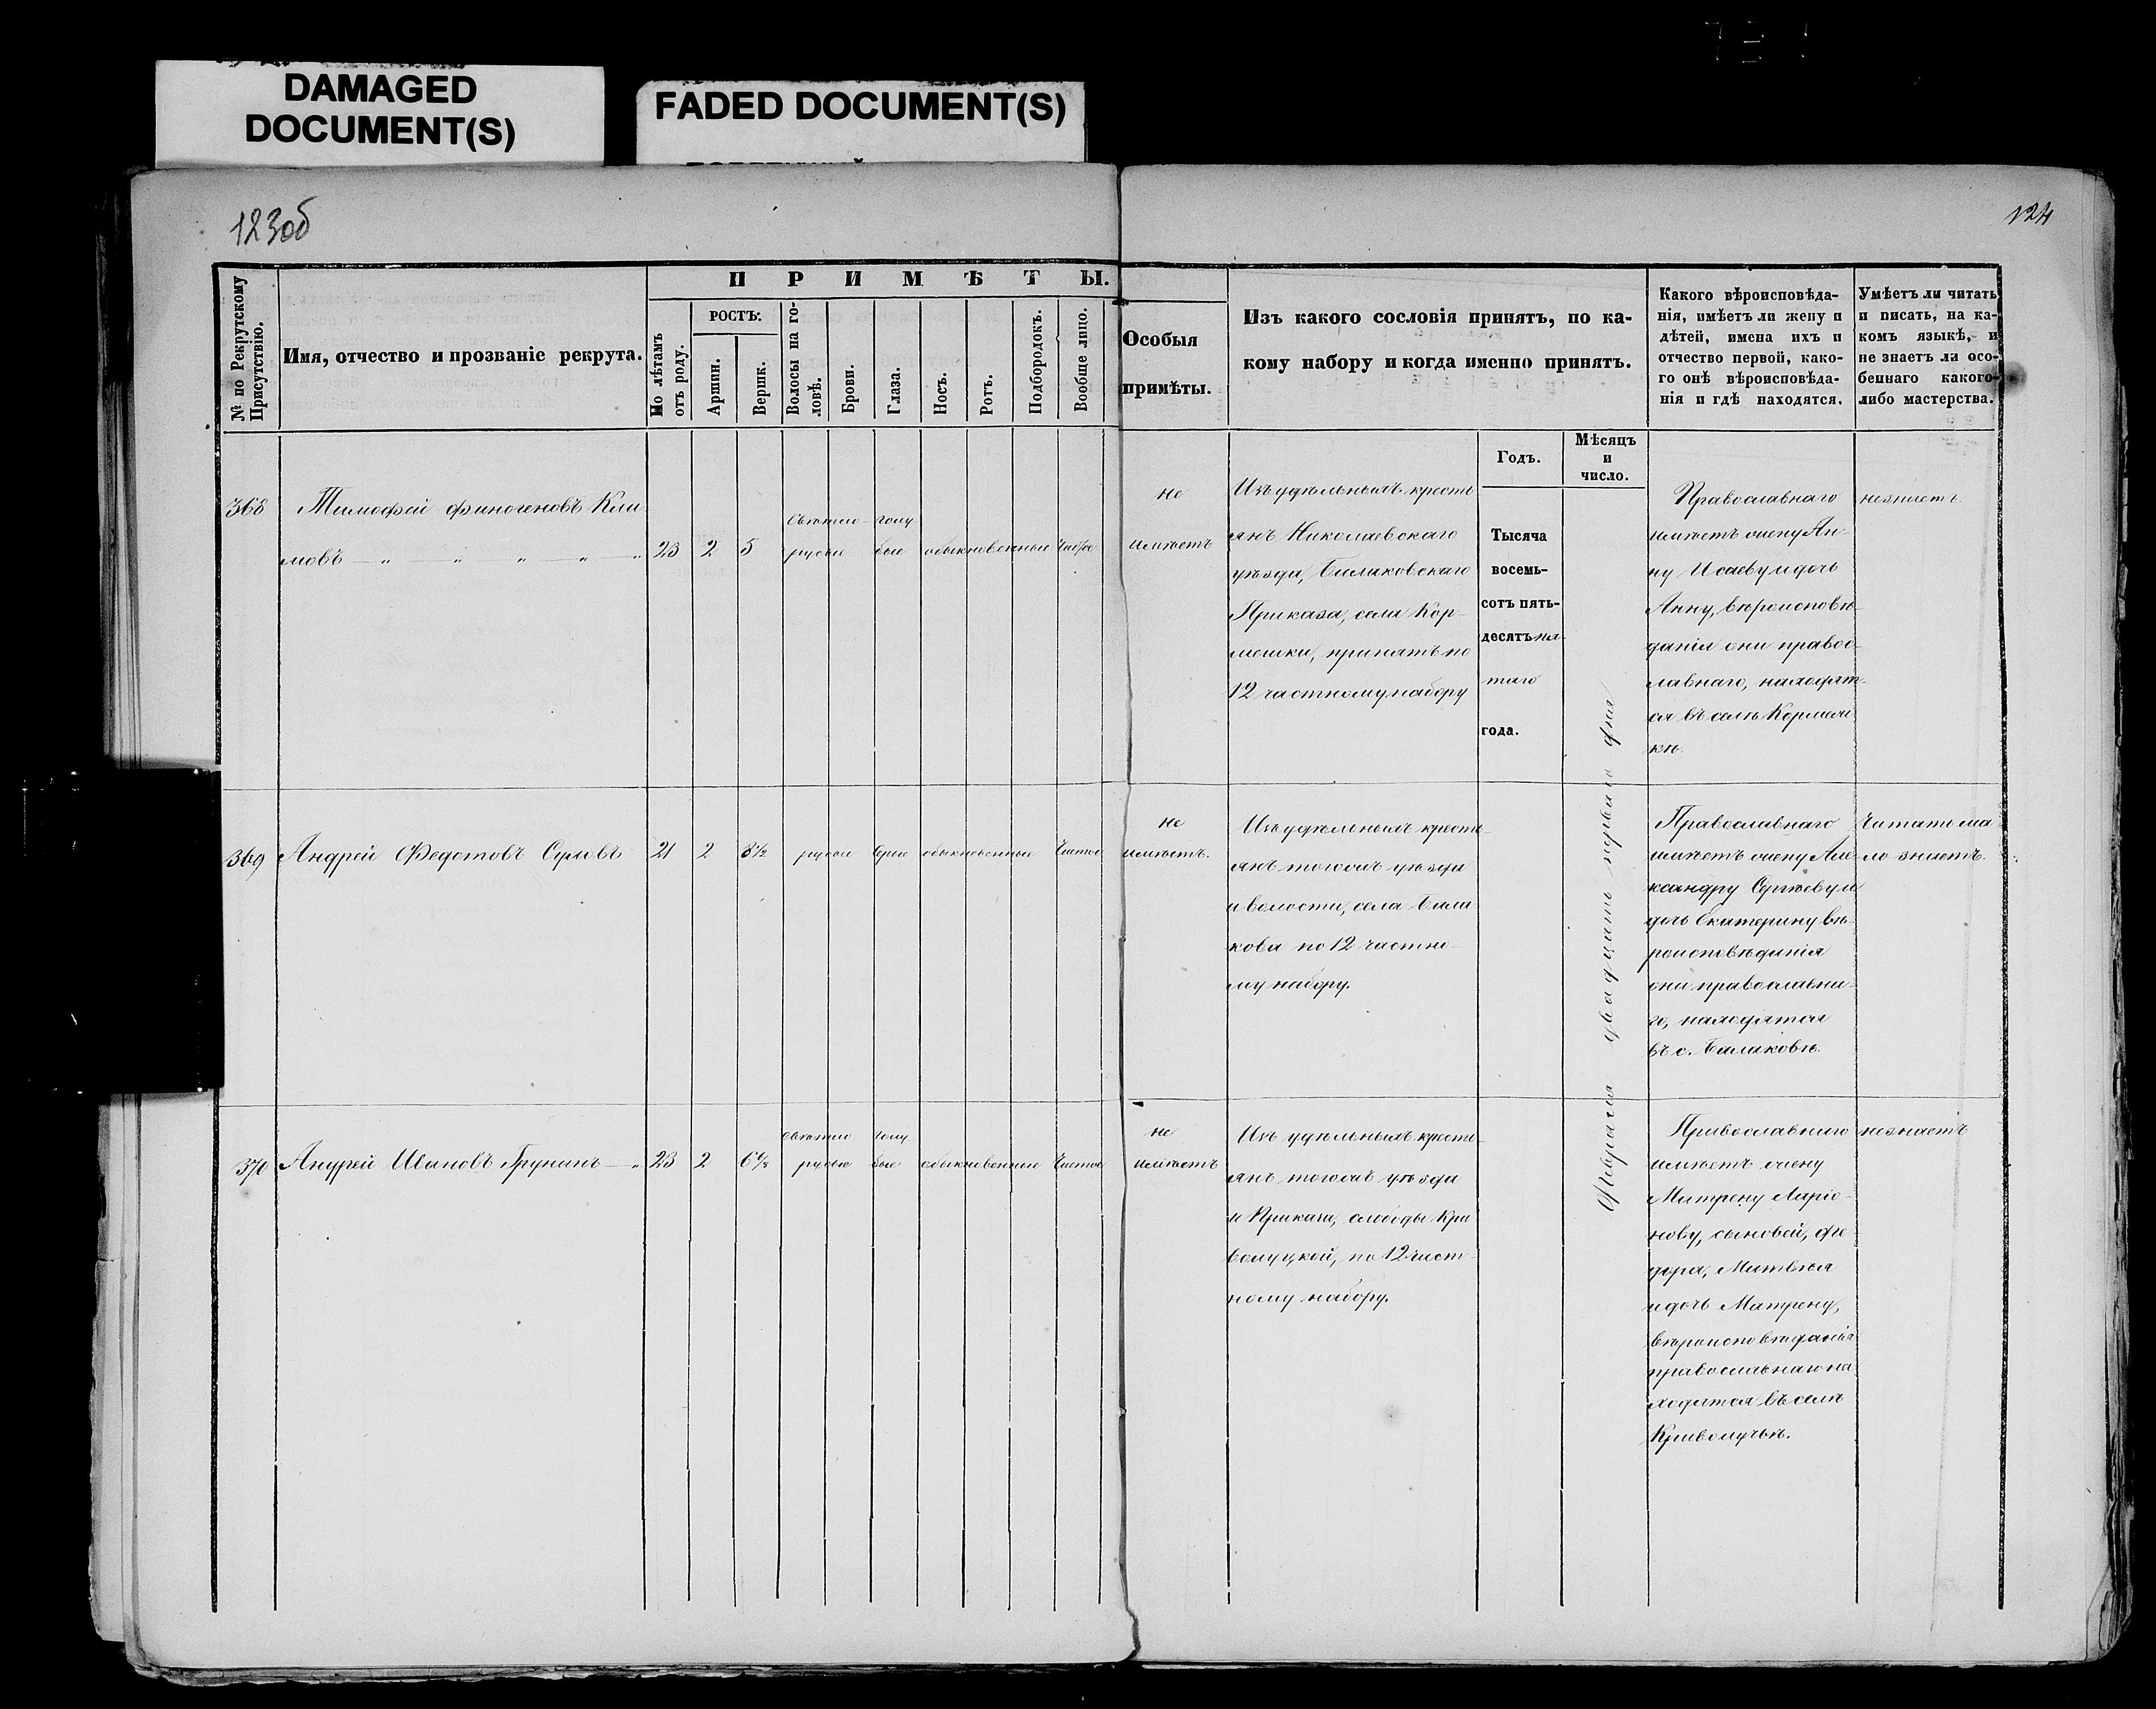 DAMAGED
DOCUMENT(S)
FADED DOCUMENT(S)
123об
124
№ по Рекрутскому
Присутствію.
Имя, отчество и прозваніе рекрута.
ПРИМѢТЫ.
По лѣтамъ
отъ роду.
РОСТЪ:
Аршин.
Вершк.
Волосы на го-
ловѣ.
Брови.
Глаза.
Носъ.
Ротъ.
Подбородокъ.
Вообще лицо.
Особыя
примѣты.
Изъ какого сословія принятъ, по ка-
кому набору и когда именно принятъ.
Годъ.
Мѣсяцъ
и
число.
Какого вѣроисповѣда-
нія, имѣетъ ли жену и
дѣтей, имена ихъ и
отчество первой, како-
го онѣ вѣроисповѣда-
нія и гдѣ находятся.
Умѣетъ ли читать
и писать, на ка-
комъ языкѣ, и
не знаетъ ли осо-
беннаго какого-
либо мастерства.
368
Тимофей Финогеновъ Кли
мовъ — „ — „ — „ — „ — „
23 2 5
свѣтло-
русые
голу
бые
обыкновенные
чистое
не
имѣетъ
Изъ удѣльныхъ кресть
янъ Николаевскаго
уѣзда, Балаковскаго
Приказа, села Кор-
мешки, принятъ по
12 частному набору
Тысяча
восемь-
сотъ пять-
десятъ пя
таго
года.
Февраля двадцать перваго дня
Православнаго
имѣетъ жену Ан-
ну Исаеву и дочь
Анну, вѣроисповѣ-
данія они правос-
лавнаго, находят-
ся въ селѣ Кормеж
кѣ.
незнаетъ.
369
Андрей Федотовъ Суловъ
21 2 3½
русые
сѣрые
обыкновенные
чистое
не
имѣетъ.
Изъ удѣльныхъ кресть-
янъ тогожъ уѣзда
и волости, села Бала
кова по 12 частно-
му набору.
Православнаго
имѣетъ жену Але-
ксандру Сергѣеву и
дочь Екатерину вѣ-
роисповѣданія
они православна-
го, находятся
въ с. Балаковѣ.
Читать ма
ло знаетъ.
370
Андрей Ивановъ Грунинъ — „
23 2 6⅛
свѣтло
русые
голу
бые
обыкновенные
чистое
не
имѣетъ
Изъ удѣльныхъ кресть-
янъ тогожъ уѣзда
и Приказа, слободы Кри
волуцкой, по 12 част-
ному набору.
Православнаго
имѣетъ жену
Матрену Ларіо-
нову, сыновей, Фе
дора, Матвѣя
и дочь Матрену,
вѣроисповѣданія
православнаго на
ходятся въ селѣ
Криволучьѣ.
незнаетъ